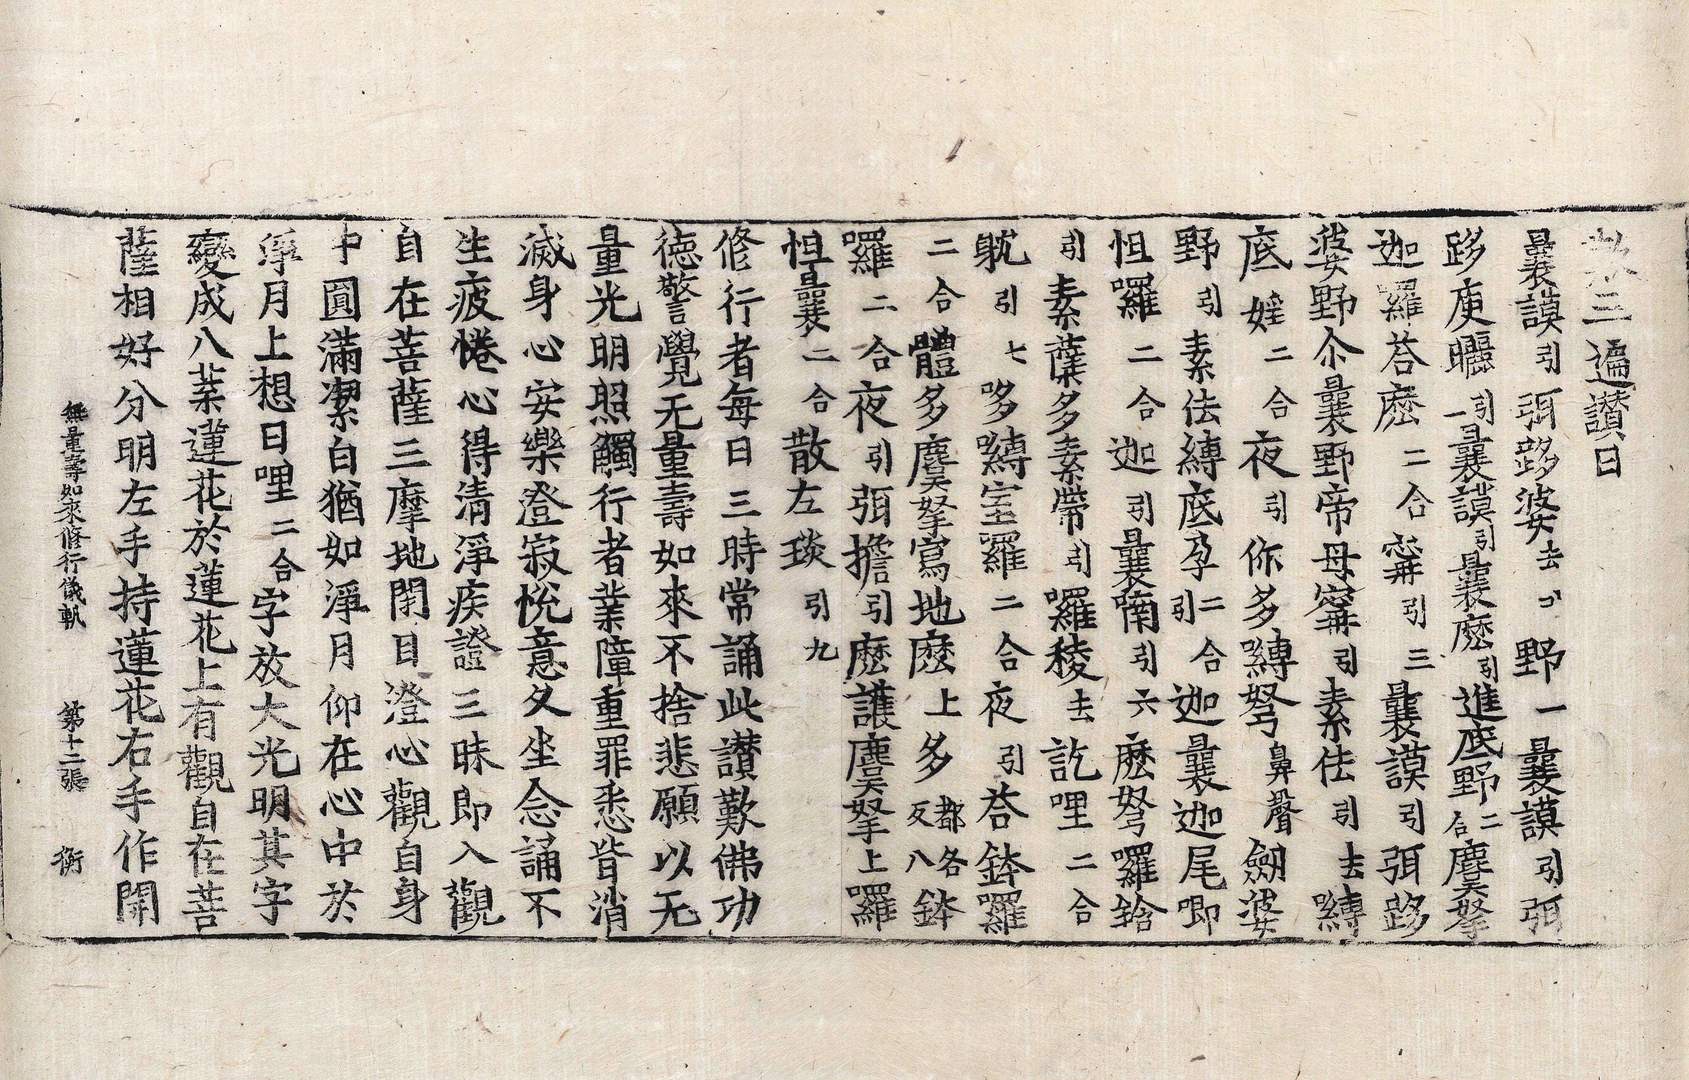 三遍讚曰
曩謨引弭跢婆去野一曩謨引弭
跢庾曬引一曩謨引曩麼引進底野二合麌拏
迦羅荅麼二合寗引三曩謨引弭跢
婆野尒曩野帝母寗引素佉引去嚩
底婬二合夜引你多嚩弩鼻聲劒婆
野引素佉嚩底孕二合引迦曩迦尾唧
怛囉二合迦引曩喃引六麼弩囉鎗
引素蘗多素帶引囉稜去訖哩二合
躭引七哆嚩室羅二合夜引荅鉢羅
二合體多麌拏寫地麼上多都各反八鉢
囉二合夜引弭擔引麼護麌拏上羅
怛曩二合散左琰引九
修行者每日三時常誦此讚歎佛功
德警覺无量壽如來不捨悲願以无
量光明照觸行者業障重罪悉皆消
滅身心安樂澄寂悅意久坐念誦不
生疲倦心得清淨疾證三昧即入觀
自在菩薩三摩地閉目澄心觀自身
中圓滿潔白猶如淨月仰在心中於
淨月上想曰哩二合字放大光明其字
變成八葉蓮花於蓮花上有觀自在菩
薩相好分明左手持蓮花右手作開
無量壽如來修行儀軌 第十三張 衡